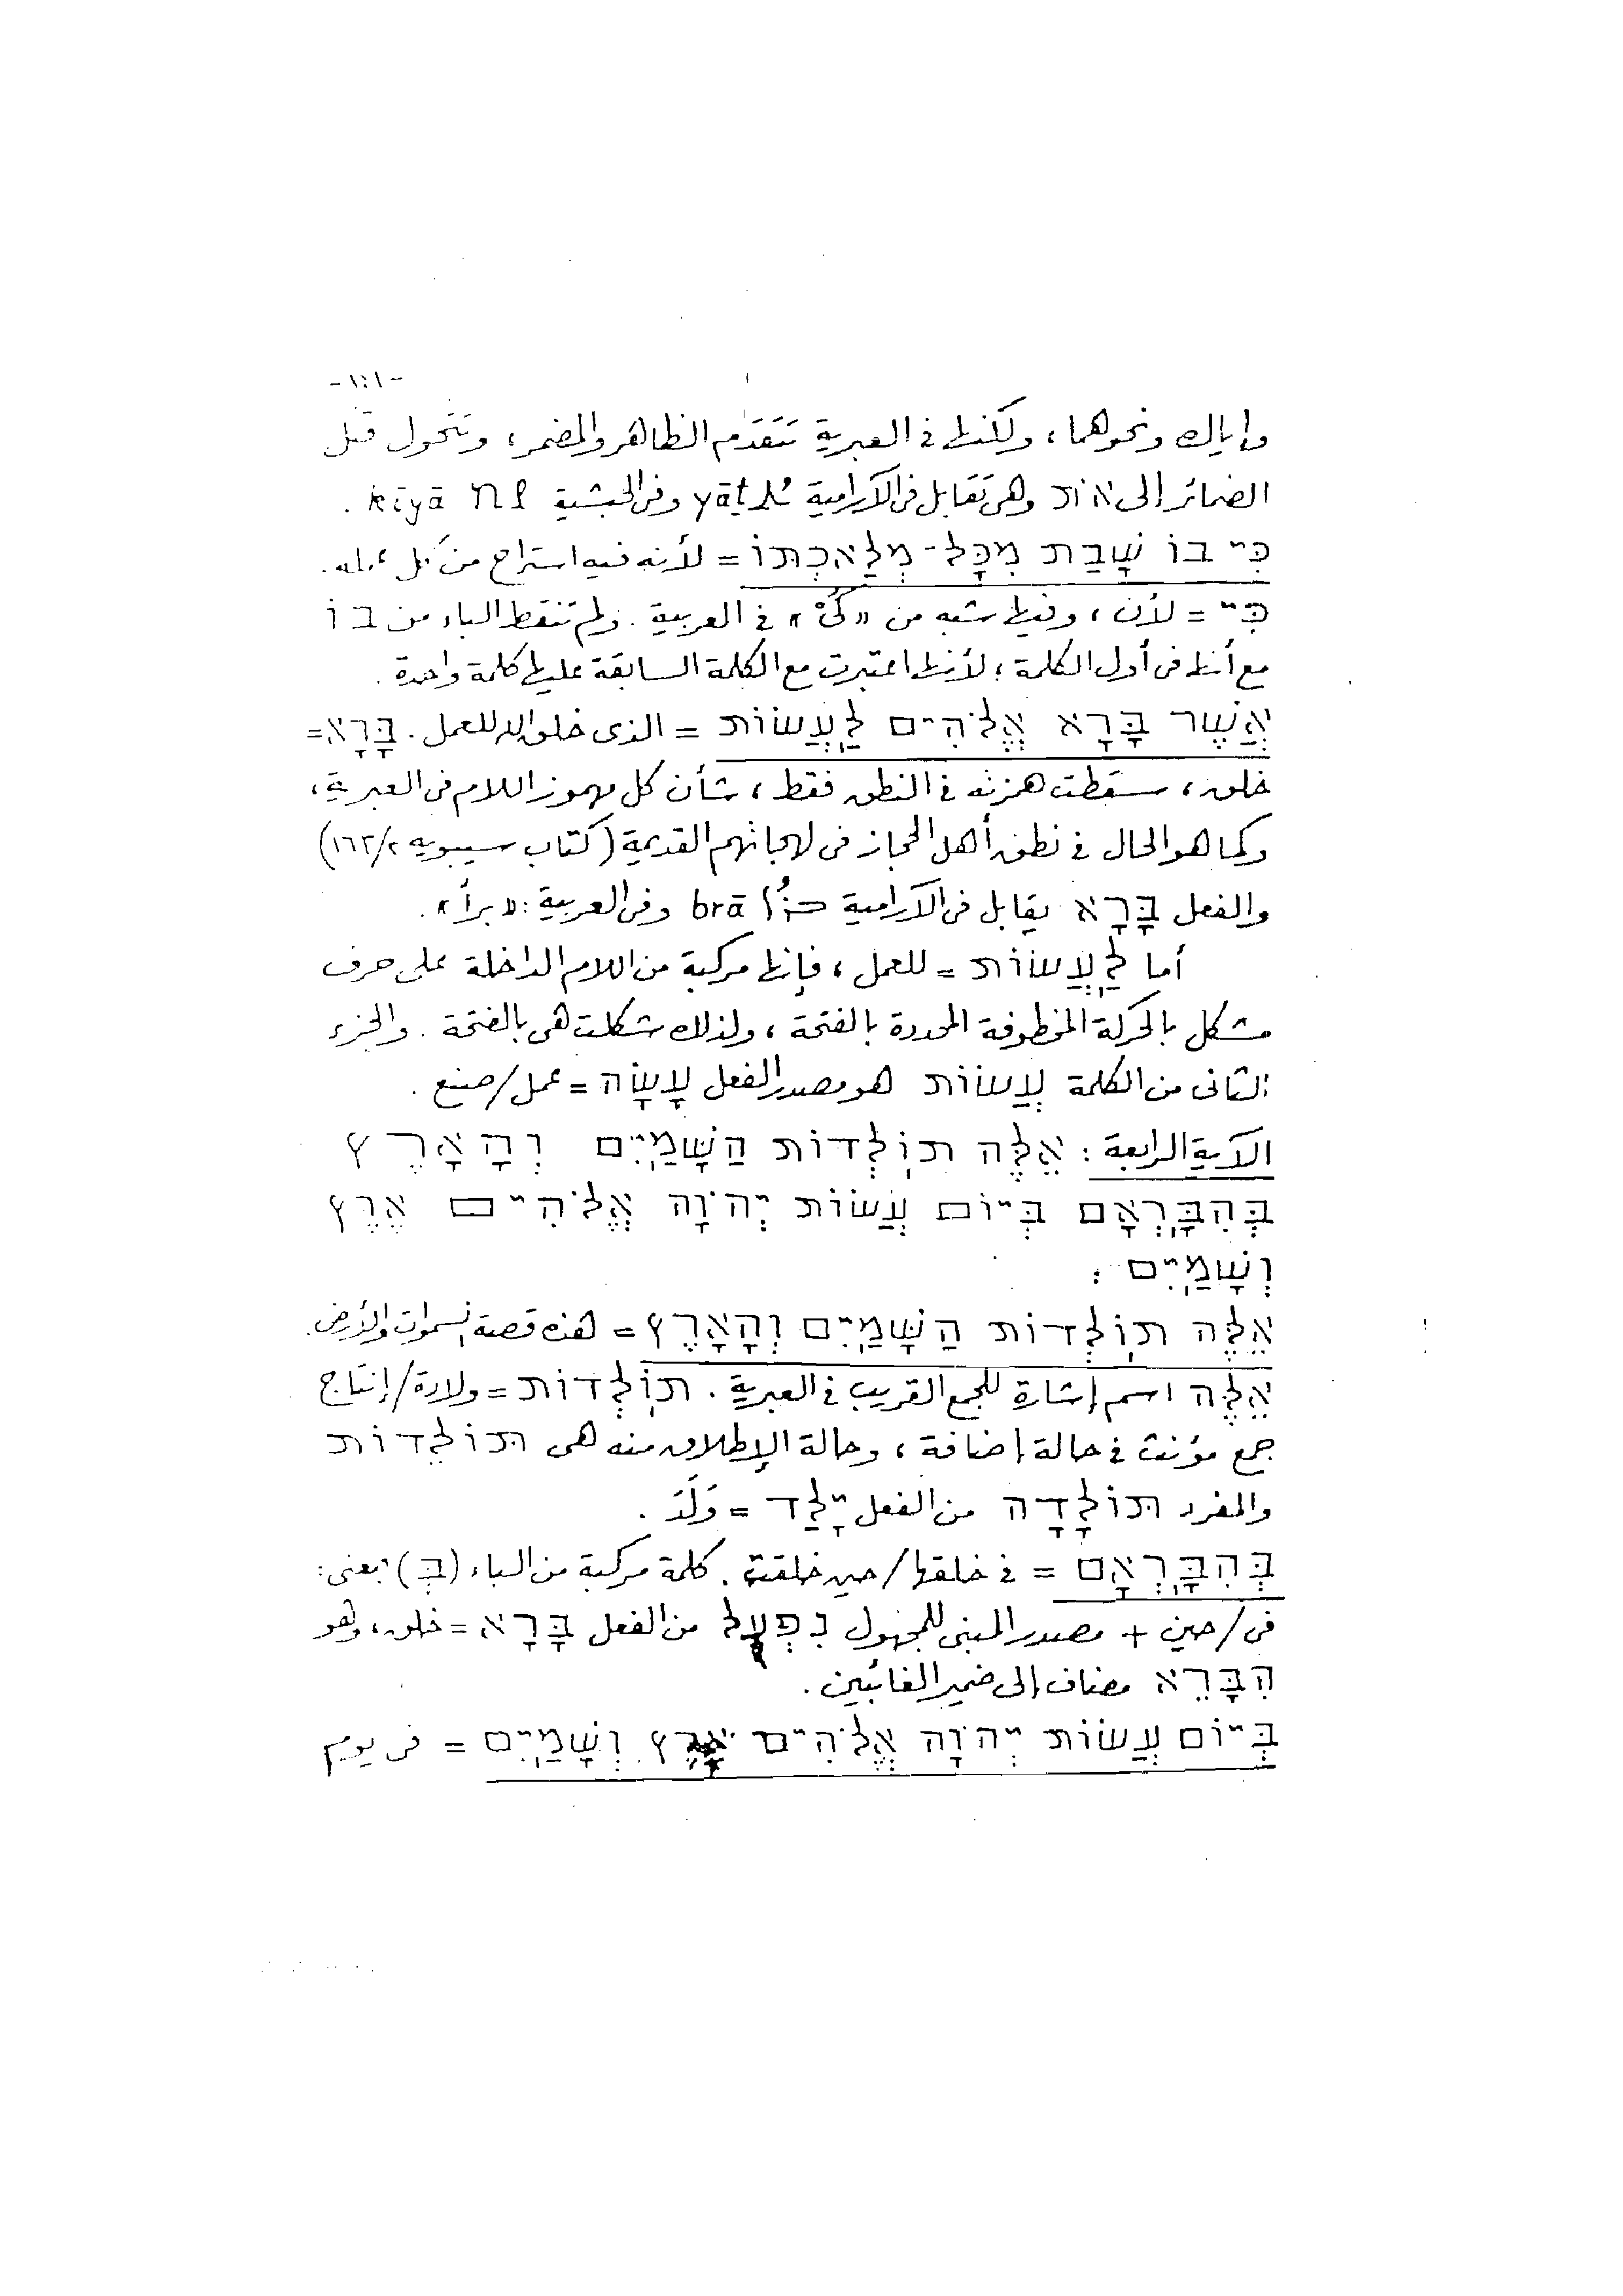 -١٤١-
وإياك ونحوهما، ولكنها في العبرية تتقدم الظاهر والمضمر، وتتحول قبل
الضمائر إلى אוֹת وهي تقابل في الآرامية ܝܳܬ yāt وفي الحبشية ኪያ kiyā .
כִּי בוֹ שָׁבַת מִכָּל-מְלַאכְתּוֹ = لأنه فيه استراح من كل عمله.
כִּי = لأن، وفيها شبه من «كَىْ» في العربية. ولم تنقط الباء من בוֹ
مع أنها في أول الكلمة؛ لأنها اعتبرت مع الكلمة السابقة عليها كلمة واحدة.
אֲשֶׁר בָּרָא אֱלֹהִים לַעֲשׂוֹת = الذى خلق الله للعمل. בָּרָא =
خلق، سقطت همزته في النطق فقط، شأن كل مهموز اللام في العبرية،
وكما هو الحال في نطق أهل الحجاز في لهجاتهم القديمة (كتاب سيبويه ١٦٢/٢)
والفعل בָּרָא يقابل في الآرامية ܒܪܳܐ brā وفي العربية: «برأ».
أما לַעֲשׂוֹת = للعمل، فإنها مركبة من اللام الداخلة على حرف
مشكل بالحركة المخطوفة المحددة بالفتحة، ولذلك شكلت هي بالفتحة. والجزء
الثاني من الكلمة עֲשׂוֹת هو مصدر الفعل עָשָׂה = عمل/صنع.
الآية الرابعة: אֵלֶּה תוֹלְדוֹת הַשָּׁמַיִם וְהָאָרֶץ
בְּהִבָּרְאָם בְּיוֹם עֲשׂוֹת יְהוָֹה אֱלֹהִים אֶרֶץ
וְשָׁמַיִם :
אֵלֶּה תוֹלְדוֹת הַשָּׁמַיִם וְהָאָרֶץ = هذه قصة السموات والأرض.
אֵלֶּה اسم إشارة للجمع القريب في العبرية. תוֹלְדוֹת = ولادة/إنتاج
جمع مؤنث في حالة إضافة، وحالة الإطلاق منه هى תּוֹלֵדוֹת
والمفرد תּוֹלָדָה من الفعل יָלַד = وَلَدَ .
בְּהִבָּרְאָם = في خلقها/حين خلقت. كلمة مركبة من الباء (בְּ) بمعنى:
في/حين + مصدر المبنى للمجهول נִפְעַל من الفعل בָּרָא = خلق، وهو
הִבָּרֵא مضاف إلى ضمير الغائبين.
בְּיוֹם עֲשׂוֹת יְהוָֹה אֱלֹהִים אֶרֶץ וְשָׁמַיִם = في يوم